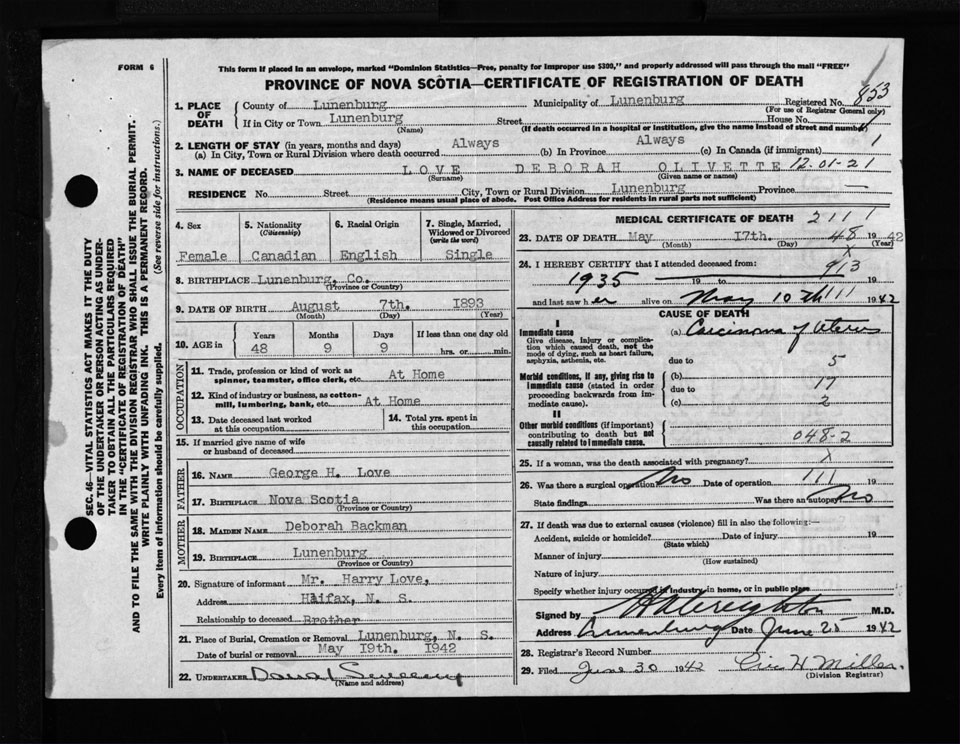 FORM 6
This form if placed in an envelope, marked "Dominion Statistics—Free, penalty for improper use $300," and properly addressed will pass through the mail "FREE"
PROVINCE OF NOVA SCOTIA—CERTIFICATE OF REGISTRATION OF DEATH
1. PLACE OF DEATH
County of Lunenburg Municipality of Lunenburg Registered No. 853
(For use of Registrar General only)
If in City or Town Lunenburg Street House No.
(Name) (If death occurred in a hospital or institution, give the name instead of street and number)
2. LENGTH OF STAY (in years, months and days) Always Always 1
(a) In City, Town or Rural Division where death occurred (b) In Province (c) In Canada (if immigrant)
3. NAME OF DECEASED LOVE DEBORAH OLIVETTE 12-01-21
(Surname) (Given name or names)
RESIDENCE No. Street City, Town or Rural Division Lunenburg Province —
(Residence means usual place of abode. Post Office Address for residents in rural parts not sufficient)
SEC. 46—VITAL STATISTICS ACT MAKES IT THE DUTY
OF THE UNDERTAKER OR PERSON ACTING AS UNDER-
TAKER TO OBTAIN ALL THE PARTICULARS REQUIRED
IN THE "CERTIFICATE OF REGISTRATION OF DEATH"
AND TO FILE THE SAME WITH THE DIVISION REGISTRAR WHO SHALL ISSUE THE BURIAL PERMIT.
WRITE PLAINLY WITH UNFADING INK. THIS IS A PERMANENT RECORD.
Every item of information should be carefully supplied. (See reverse side for instructions.)
4. Sex 5. Nationality (Citizenship) 6. Racial Origin 7. Single, Married, Widowed or Divorced (write the word)
Female Canadian English Single
8. BIRTHPLACE Lunenburg, Co.
(Province or Country)
9. DATE OF BIRTH August 7th. 1893
(Month) (Day) (Year)
10. AGE in Years Months Days If less than one day old
48 9 9 hrs. or min.
OCCUPATION
11. Trade, profession or kind of work as spinner, teamster, office clerk, etc. At Home
12. Kind of industry or business, as cotton-mill, lumbering, bank, etc. At Home
13. Date deceased last worked at this occupation
14. Total yrs. spent in this occupation
15. If married give name of wife or husband of deceased
FATHER
16. NAME George H. Love
17. BIRTHPLACE Nova Scotia
(Province or Country)
MOTHER
18. MAIDEN NAME Deborah Backman
19. BIRTHPLACE Lunenburg
(Province or Country)
20. Signature of informant Mr. Harry Love,
Address Halifax, N. S.
Relationship to deceased Brother
21. Place of Burial, Cremation or Removal Lunenburg, N. S.
Date of burial or removal May 19th. 1942
22. UNDERTAKER
(Name and address)
MEDICAL CERTIFICATE OF DEATH 2111
23. DATE OF DEATH May 17th. 48 1942
(Month) (Day) (Year)
24. I HEREBY CERTIFY that I attended deceased from:
1935 19 to 913 19
and last saw her alive on May 10th 111 1942
CAUSE OF DEATH
I
Immediate cause (a) Carcinoma of Uterus
Give disease, injury or complication which caused death, not the mode of dying, such as heart failure, asphyxia, asthenia, etc.
due to 5
Morbid conditions, if any, giving rise to immediate cause (stated in order proceeding backwards from immediate cause).
(b) 17
due to
(c) 2
II
Other morbid conditions (if important) contributing to death but not causally related to immediate cause.
048-2
25. If a woman, was the death associated with pregnancy? X
26. Was there a surgical operation? No Date of operation 111 19
State findings Was there an autopsy? No
27. If death was due to external causes (violence) fill in also the following:—
Accident, suicide or homicide? Date of injury 19
(State which)
Manner of injury
(How sustained)
Nature of injury
Specify whether injury occurred in industry, in home, or in public place
Signed by M.D.
Address Lunenburg Date June 25 1942
28. Registrar's Record Number
29. Filed June 30 1942 H Miller.
(Division Registrar)